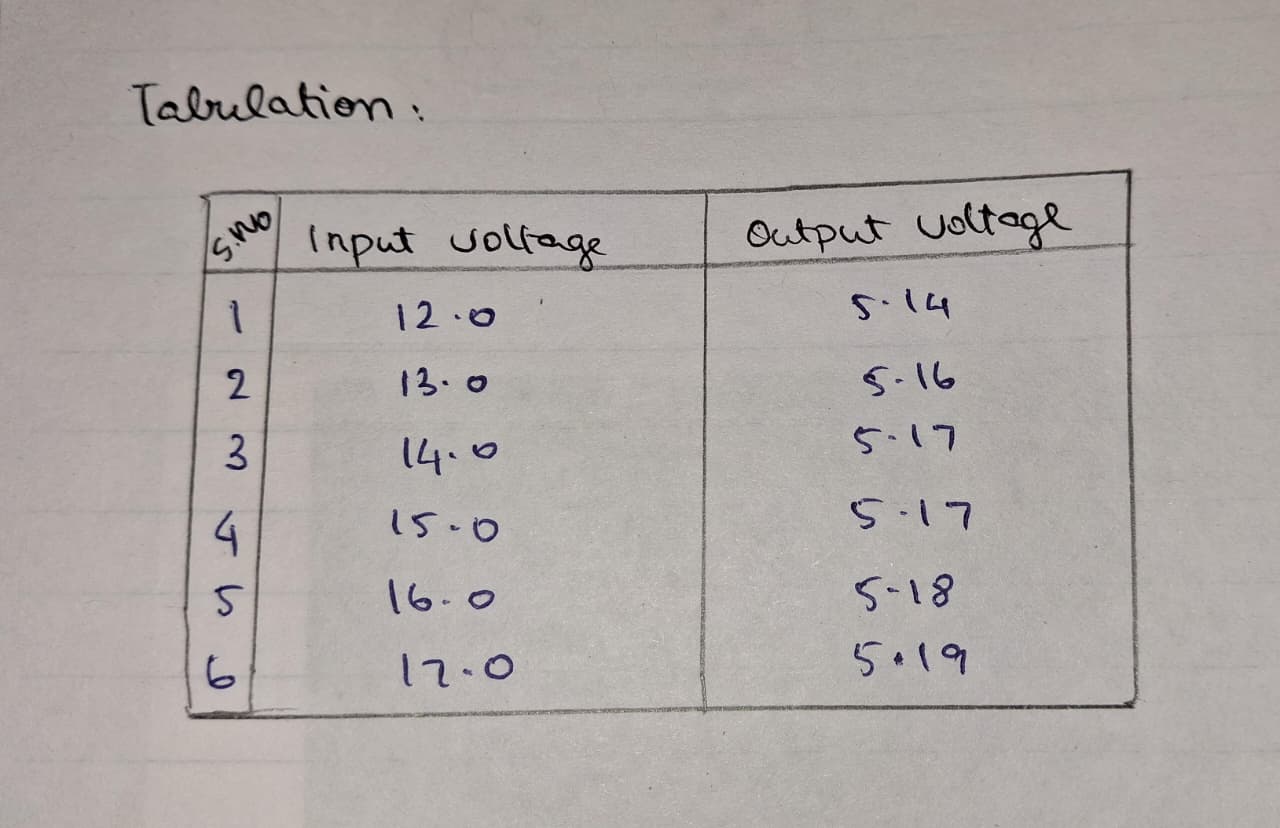 Tabulation:
S.NO Input voltage Output voltage
1 12.0 5.14
2 13.0 5.16
3 14.0 5.17
4 15.0 5.17
5 16.0 5.18
6 17.0 5.19